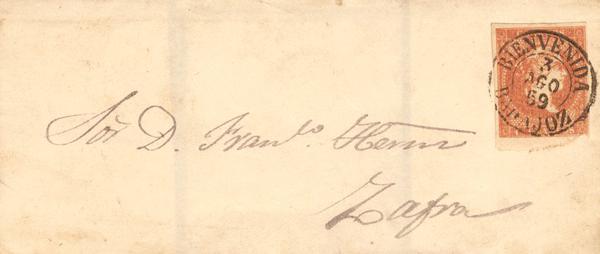 BIENVENIDA
3
AGO
69
BADAJOZ
Sör D. Franco. Herrn
Zafra